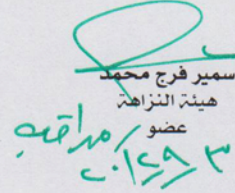 سمير فرج محمد
هيئة النزاهة
عضو
مراقب